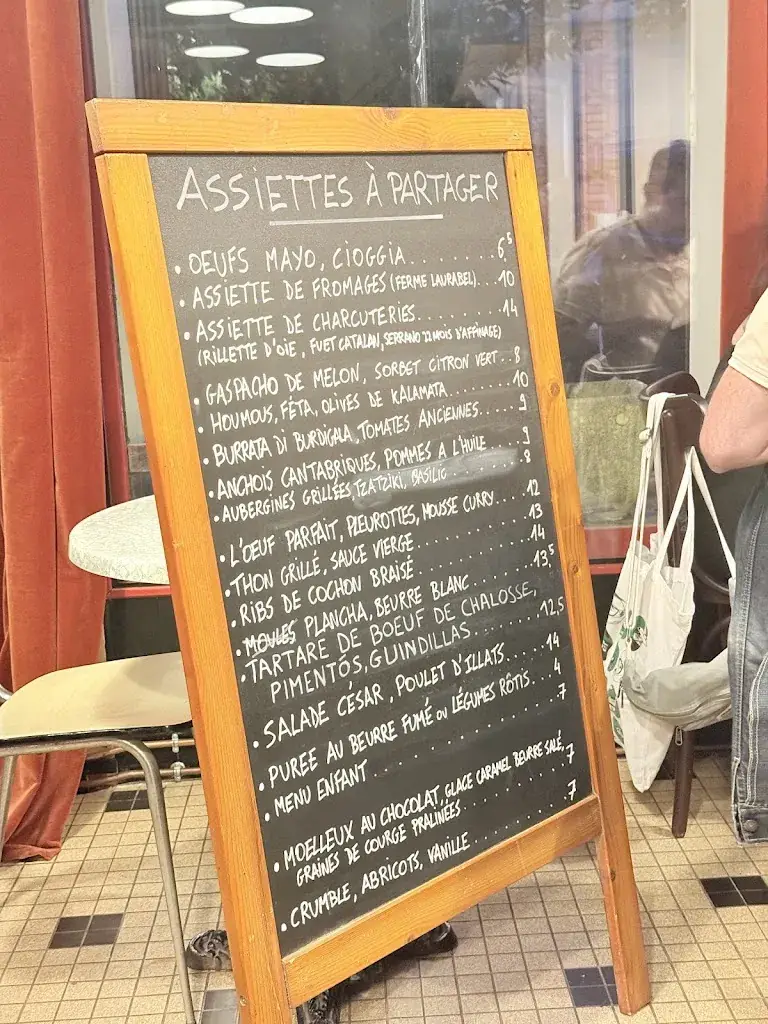 ASSIETTES À PARTAGER
• OEUFS MAYO, CIOGGIA........6⁵
• ASSIETTE DE FROMAGES (FERME LAURABEL)...10
• ASSIETTE DE CHARCUTERIES........14
(RILLETTE D'OIE, FUET CATALAN, SERRANO 22 MOIS D'AFFINAGE)
• GASPACHO DE MELON, SORBET CITRON VERT..8
• HOUMOUS, FÉTA, OLIVES DE KALAMATA........10
• BURRATA DI BURDIGALA, TOMATES ANCIENNES.....9
• ANCHOIS CANTABRIQUES, POMMES A L'HUILE....9
• AUBERGINES GRILLÉES, TZATZÍKI, BASILIC........8
• L'OEUF PARFAIT, PLEUROTTES, MOUSSE CURRY....12
• THON GRILLÉ, SAUCE VIERGE............13
• RIBS DE COCHON BRAISÉ............14
• MOULES PLANCHA, BEURRE BLANC........13,⁵
• TARTARE DE BOEUF DE CHALOSSE,
PIMENTÓS, GUINDILLAS........12,5
• SALADE CÉSAR, POULET D'ILLATS.....14
• PUREE AU BEURRE FUMÉ OU LÉGUMES RÔTIS...4
• MENU ENFANT............7
• MOELLEUX AU CHOCOLAT, GLACE CARAMEL BEURRE SALÉ,
GRAINES DE COURGE PRALINÉES..........7
• CRUMBLE, ABRICOTS, VANILLE..........7